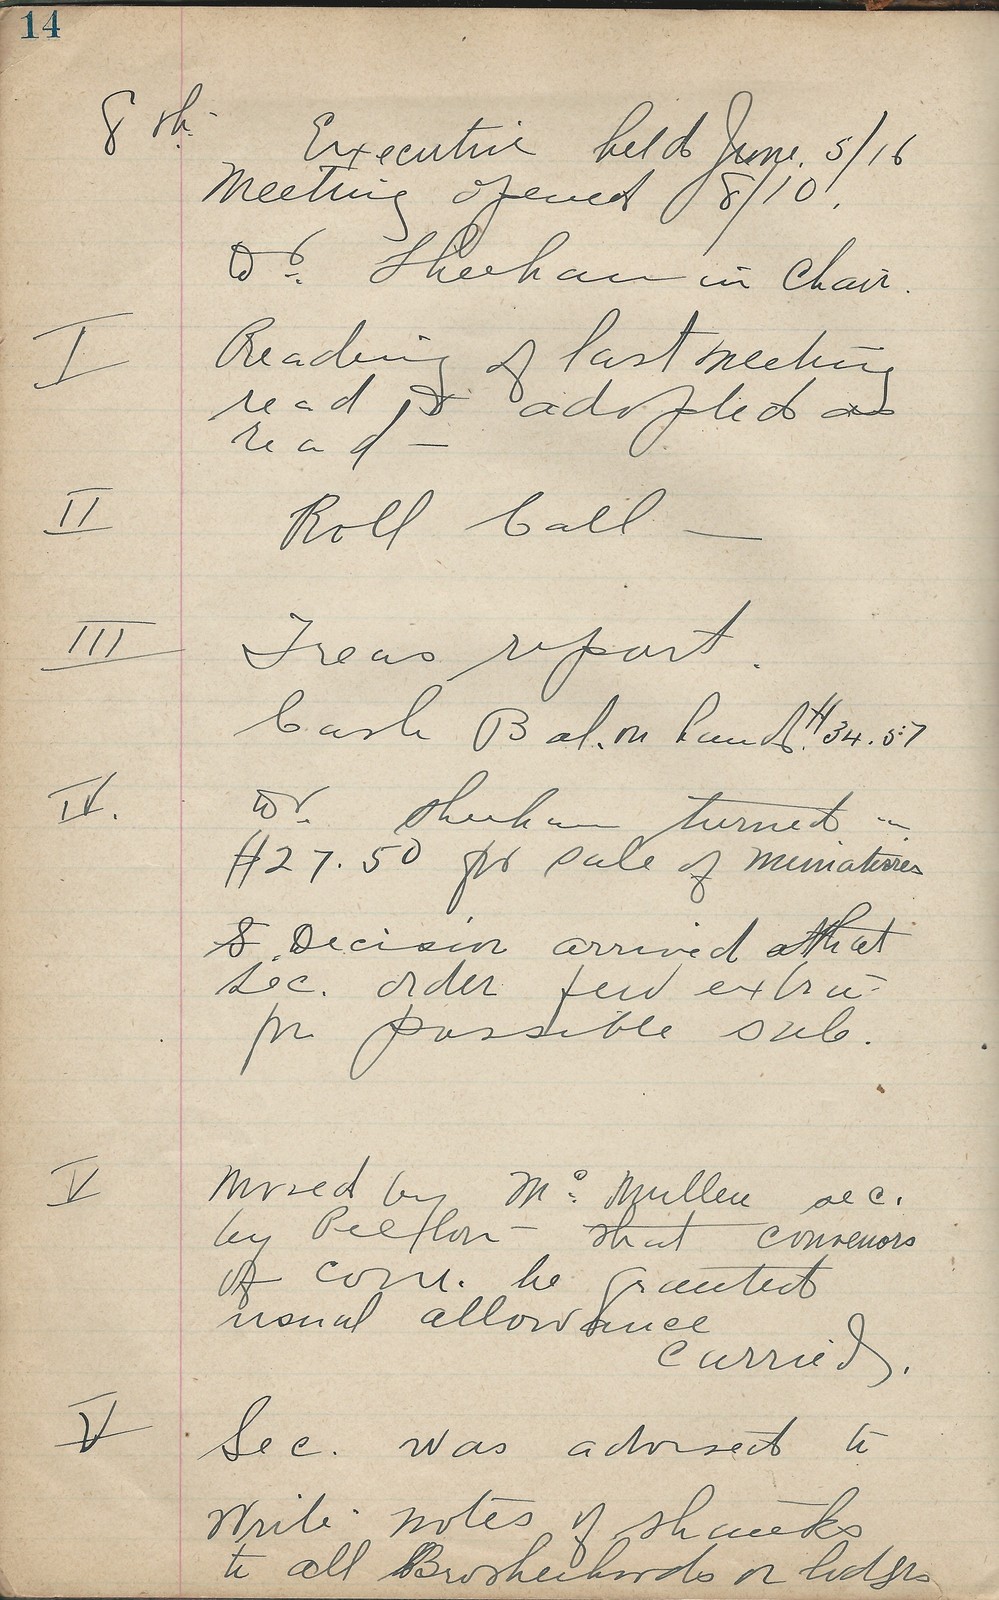 14
8th. Executive held June. 5/16
Meeting opened 8/10.
Dr. Sheehan in Chair.
I Reading of last meeting
read & adopted as
read —
II Roll Call —
III Treas report.
Cash Bal. on hand. $34.57
IV. Dr. Sheehan turned in
$27.50 for sale of miniatures
& Decision arrived at that
Sec. order few extra
for possible sale.
V Moved by Mc Mullen sec.
by — that convenors
of com. be granted
usual allowance
Carried.
V Sec. was advised to
write notes of thanks
to all Brotherhoods or lodges